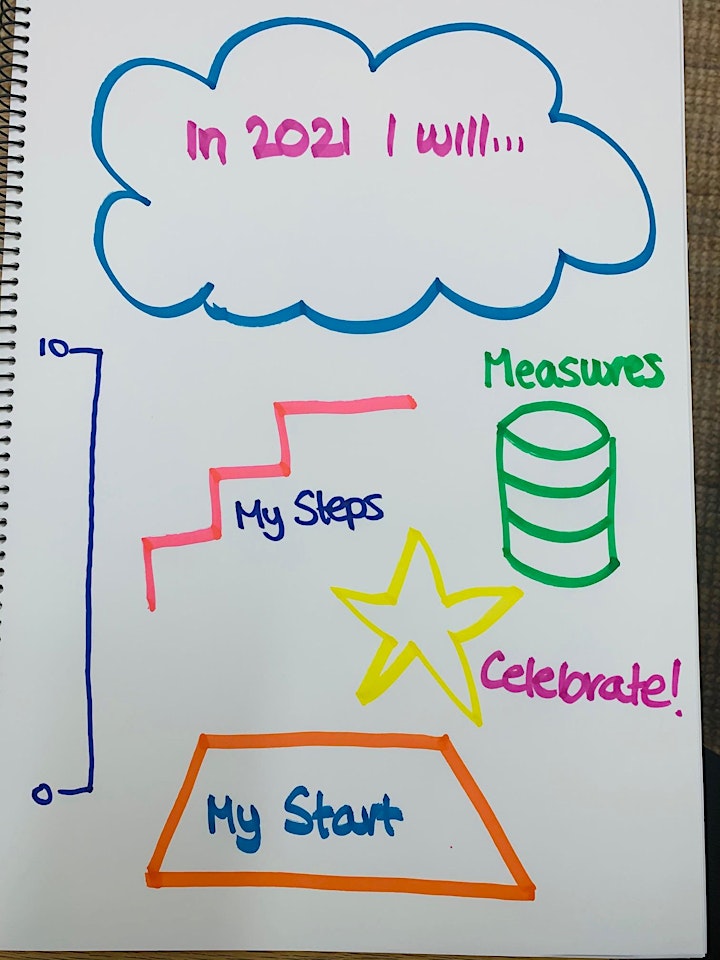 In 2021 I will...
10
Measures
My Steps
Celebrate!
0
My Start